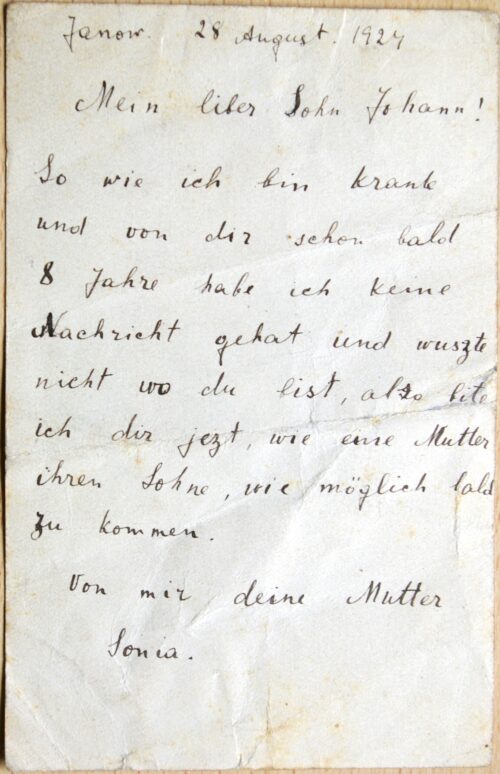 Janow. 28 August. 1924
Mein liber Sohn Johann!
So wie ich bin krank
und von dir schon bald
8 Jahre habe ich keine
Nachricht gehat und wuszte
nicht wo du bist, also bite
ich dir jezt, wie eine Mutter
ihren Sohne, wie möglich bald
zu kommen.
Von mir deine Mutter
Sonia.